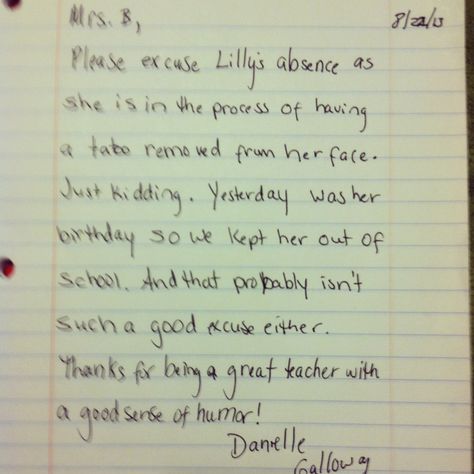 Mrs. B, 8/22/13
Please excuse Lilly's absence as
she is in the process of having
a tatoo removed from her face.
Just kidding. Yesterday was her
birthday so we kept her out of
school. And that probably isn't
such a good excuse either.
Thanks for being a great teacher with
a good sense of humor!
Danielle
Galloway